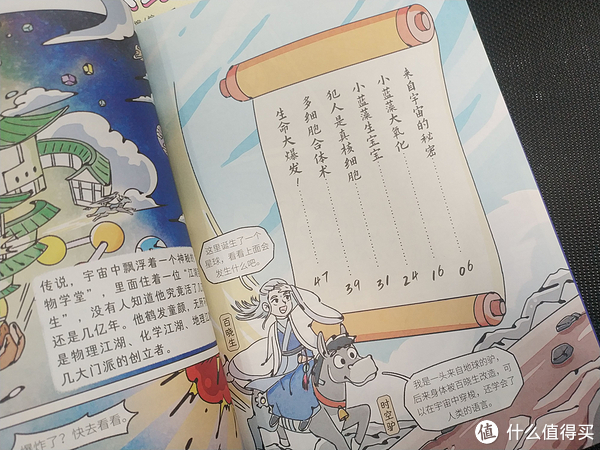 传说，宇宙中飘浮着一个神秘的
物学堂”，里面住着一位“江
生”，没有人知道他究竟活了
还是几亿年。他鹤发童颜，无所
是物理江湖、化学江湖、地理江
几大门派的创立者。
爆炸了？快去看看。
来自宇宙的秘密……………06
小蓝藻大氧化……………16
小蓝藻生宝宝……………24
犯人是真核细胞……………31
多细胞合体术……………39
生命大爆发！……………47
这里诞生了一个
星球，看看上面会
发生什么吧。
百晓生
我是一头来自地球的驴，
后来身体被百晓生改造，可
以在宇宙中穿梭，还学会了
人类的语言。
时空驴
值 什么值得买